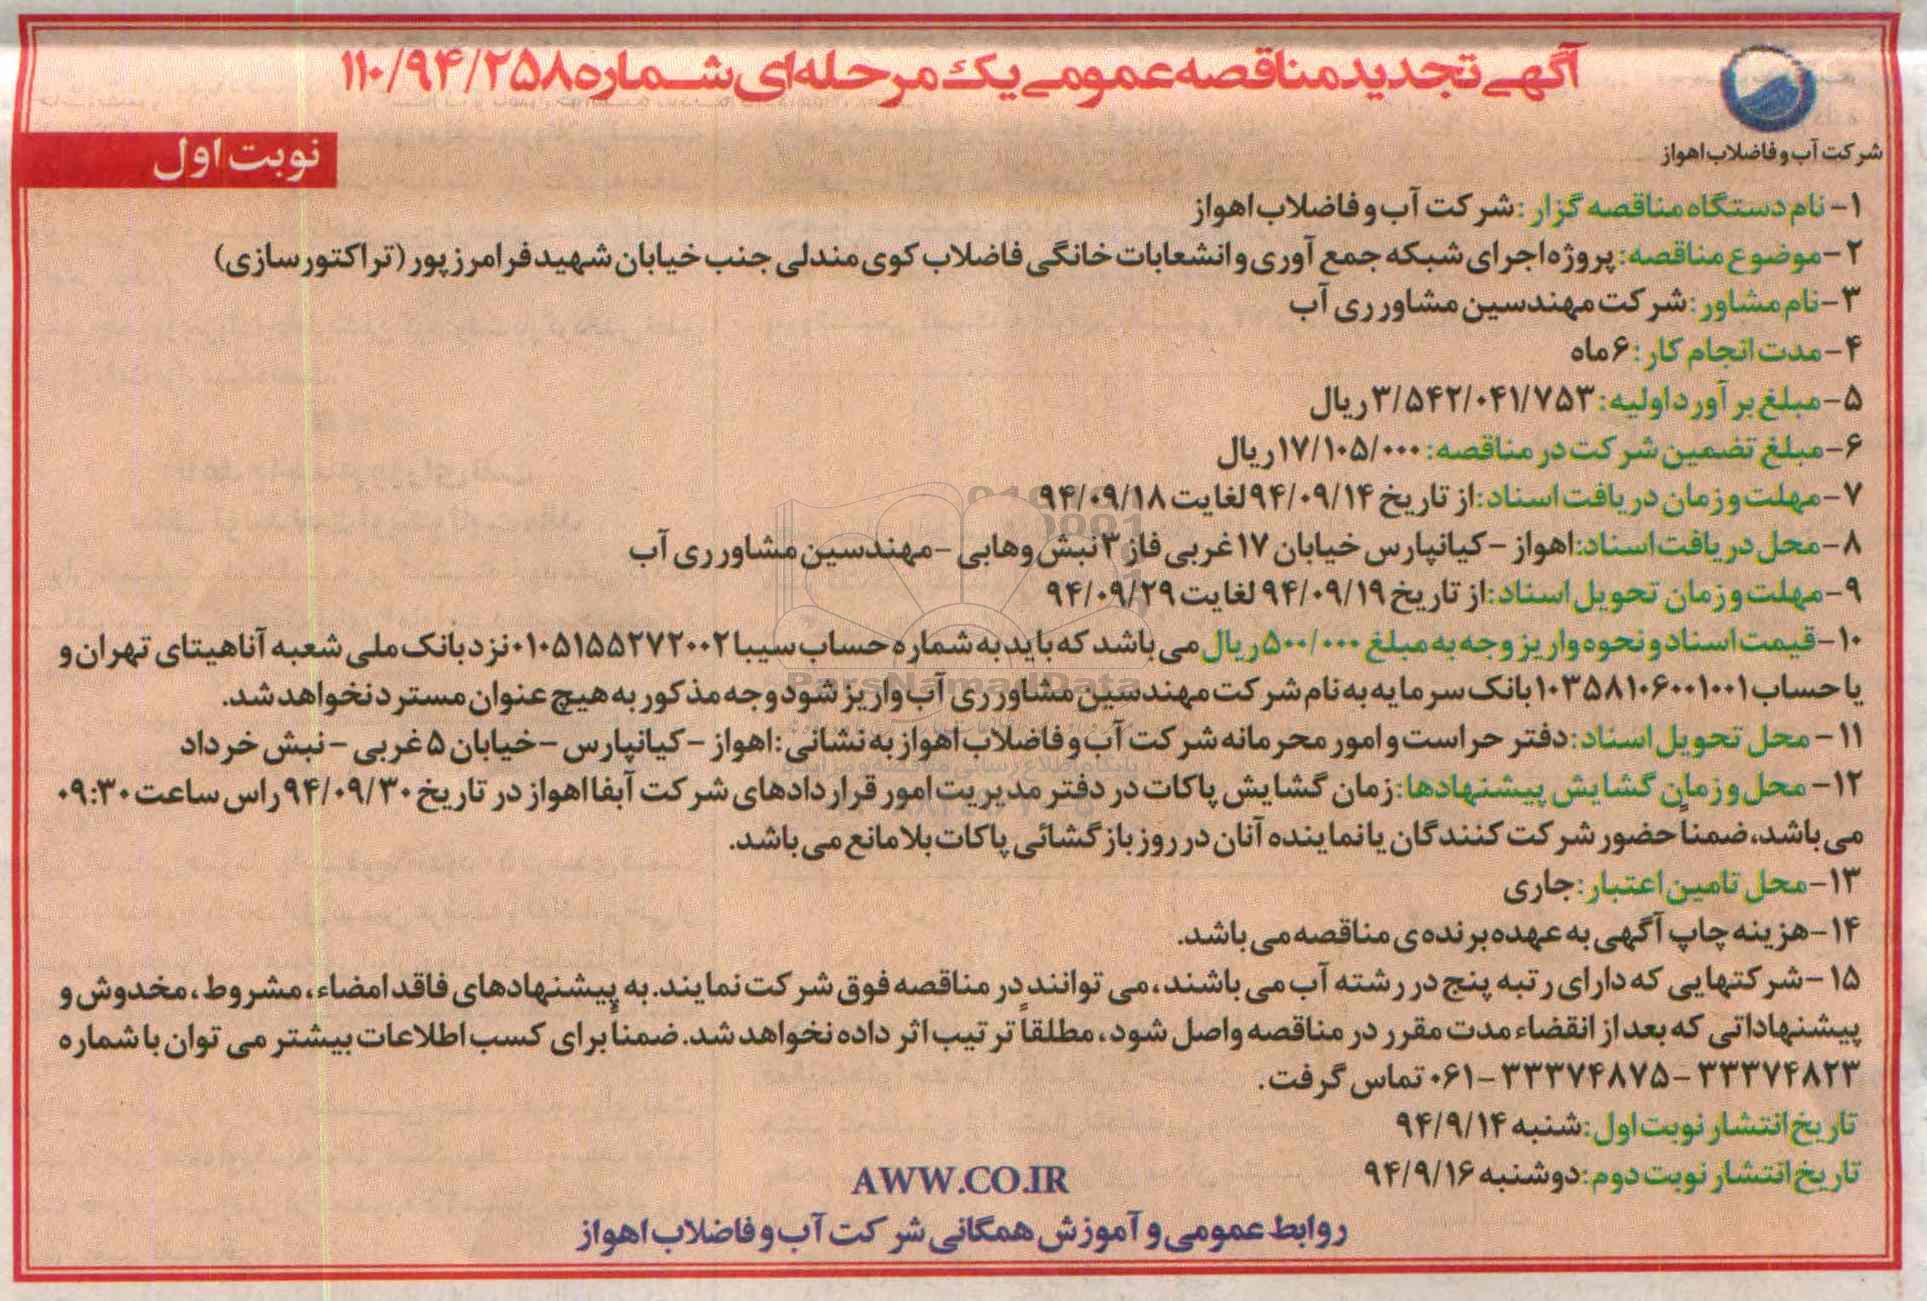 آگهی تجدید مناقصه عمومی یک مرحله‌ای شماره ۱۱۰/۹۴/۲۵۸
شرکت آب و فاضلاب اهواز
نوبت اول
۱- نام دستگاه مناقصه گزار: شرکت آب و فاضلاب اهواز
۲- موضوع مناقصه: پروژه اجرای شبکه جمع آوری و انشعابات خانگی فاضلاب کوی مندلی جنب خیابان شهید فرامرزپور (تراکتورسازی)
۳- نام مشاور: شرکت مهندسین مشاور ری آب
۴- مدت انجام کار: ۶ ماه
۵- مبلغ برآورد اولیه: ۳/۵۴۲/۰۴۱/۷۵۳ ریال
۶- مبلغ تضمین شرکت در مناقصه: ۱۷/۱۰۵/۰۰۰ ریال
۷- مهلت و زمان دریافت اسناد: از تاریخ ۹۴/۰۹/۱۴ لغایت ۹۴/۰۹/۱۸
۸- محل دریافت اسناد: اهواز - کیانپارس خیابان ۱۷ غربی فاز ۳ نبش وهابی - مهندسین مشاور ری آب
۹- مهلت و زمان تحویل اسناد: از تاریخ ۹۴/۰۹/۱۹ لغایت ۹۴/۰۹/۲۹
۱۰- قیمت اسناد و نحوه واریز وجه به مبلغ ۵۰۰/۰۰۰ ریال می باشد که باید به شماره حساب سیبا ۰۱۰۵۱۵۵۲۷۲۰۰۲ نزد بانک ملی شعبه آناهیتای تهران و
یا حساب ۱۰۳۵۸۱۰۶۰۰۱۰۰۱ بانک سرمایه به نام شرکت مهندسین مشاور ری آب واریز شود وجه مذکور به هیچ عنوان مسترد نخواهد شد.
۱۱- محل تحویل اسناد: دفتر حراست و امور محرمانه شرکت آب و فاضلاب اهواز به نشانی: اهواز - کیانپارس - خیابان ۵ غربی - نبش خرداد
۱۲- محل و زمان گشایش پیشنهادها: زمان گشایش پاکات در دفتر مدیریت امور قراردادهای شرکت آبفا اهواز در تاریخ ۹۴/۰۹/۳۰ راس ساعت ۰۹:۳۰
می باشد، ضمناً حضور شرکت کنندگان یا نماینده آنان در روز بازگشائی پاکات بلامانع می باشد.
۱۳- محل تامین اعتبار: جاری
۱۴- هزینه چاپ آگهی به عهده برنده ی مناقصه می باشد.
۱۵- شرکتهایی که دارای رتبه پنج در رشته آب می باشند، می توانند در مناقصه فوق شرکت نمایند. به پیشنهادهای فاقد امضاء، مشروط، مخدوش و
پیشنهاداتی که بعد از انقضاء مدت مقرر در مناقصه واصل شود، مطلقاً ترتیب اثر داده نخواهد شد. ضمناً برای کسب اطلاعات بیشتر می توان با شماره
۳۳۳۷۴۸۲۳ - ۳۳۳۷۴۸۷۵ - ۰۶۱ تماس گرفت.
تاریخ انتشار نوبت اول: شنبه ۹۴/۹/۱۴
تاریخ انتشار نوبت دوم: دوشنبه ۹۴/۹/۱۶
AWW.CO.IR
روابط عمومی و آموزش همگانی شرکت آب و فاضلاب اهواز
ParsNamadData